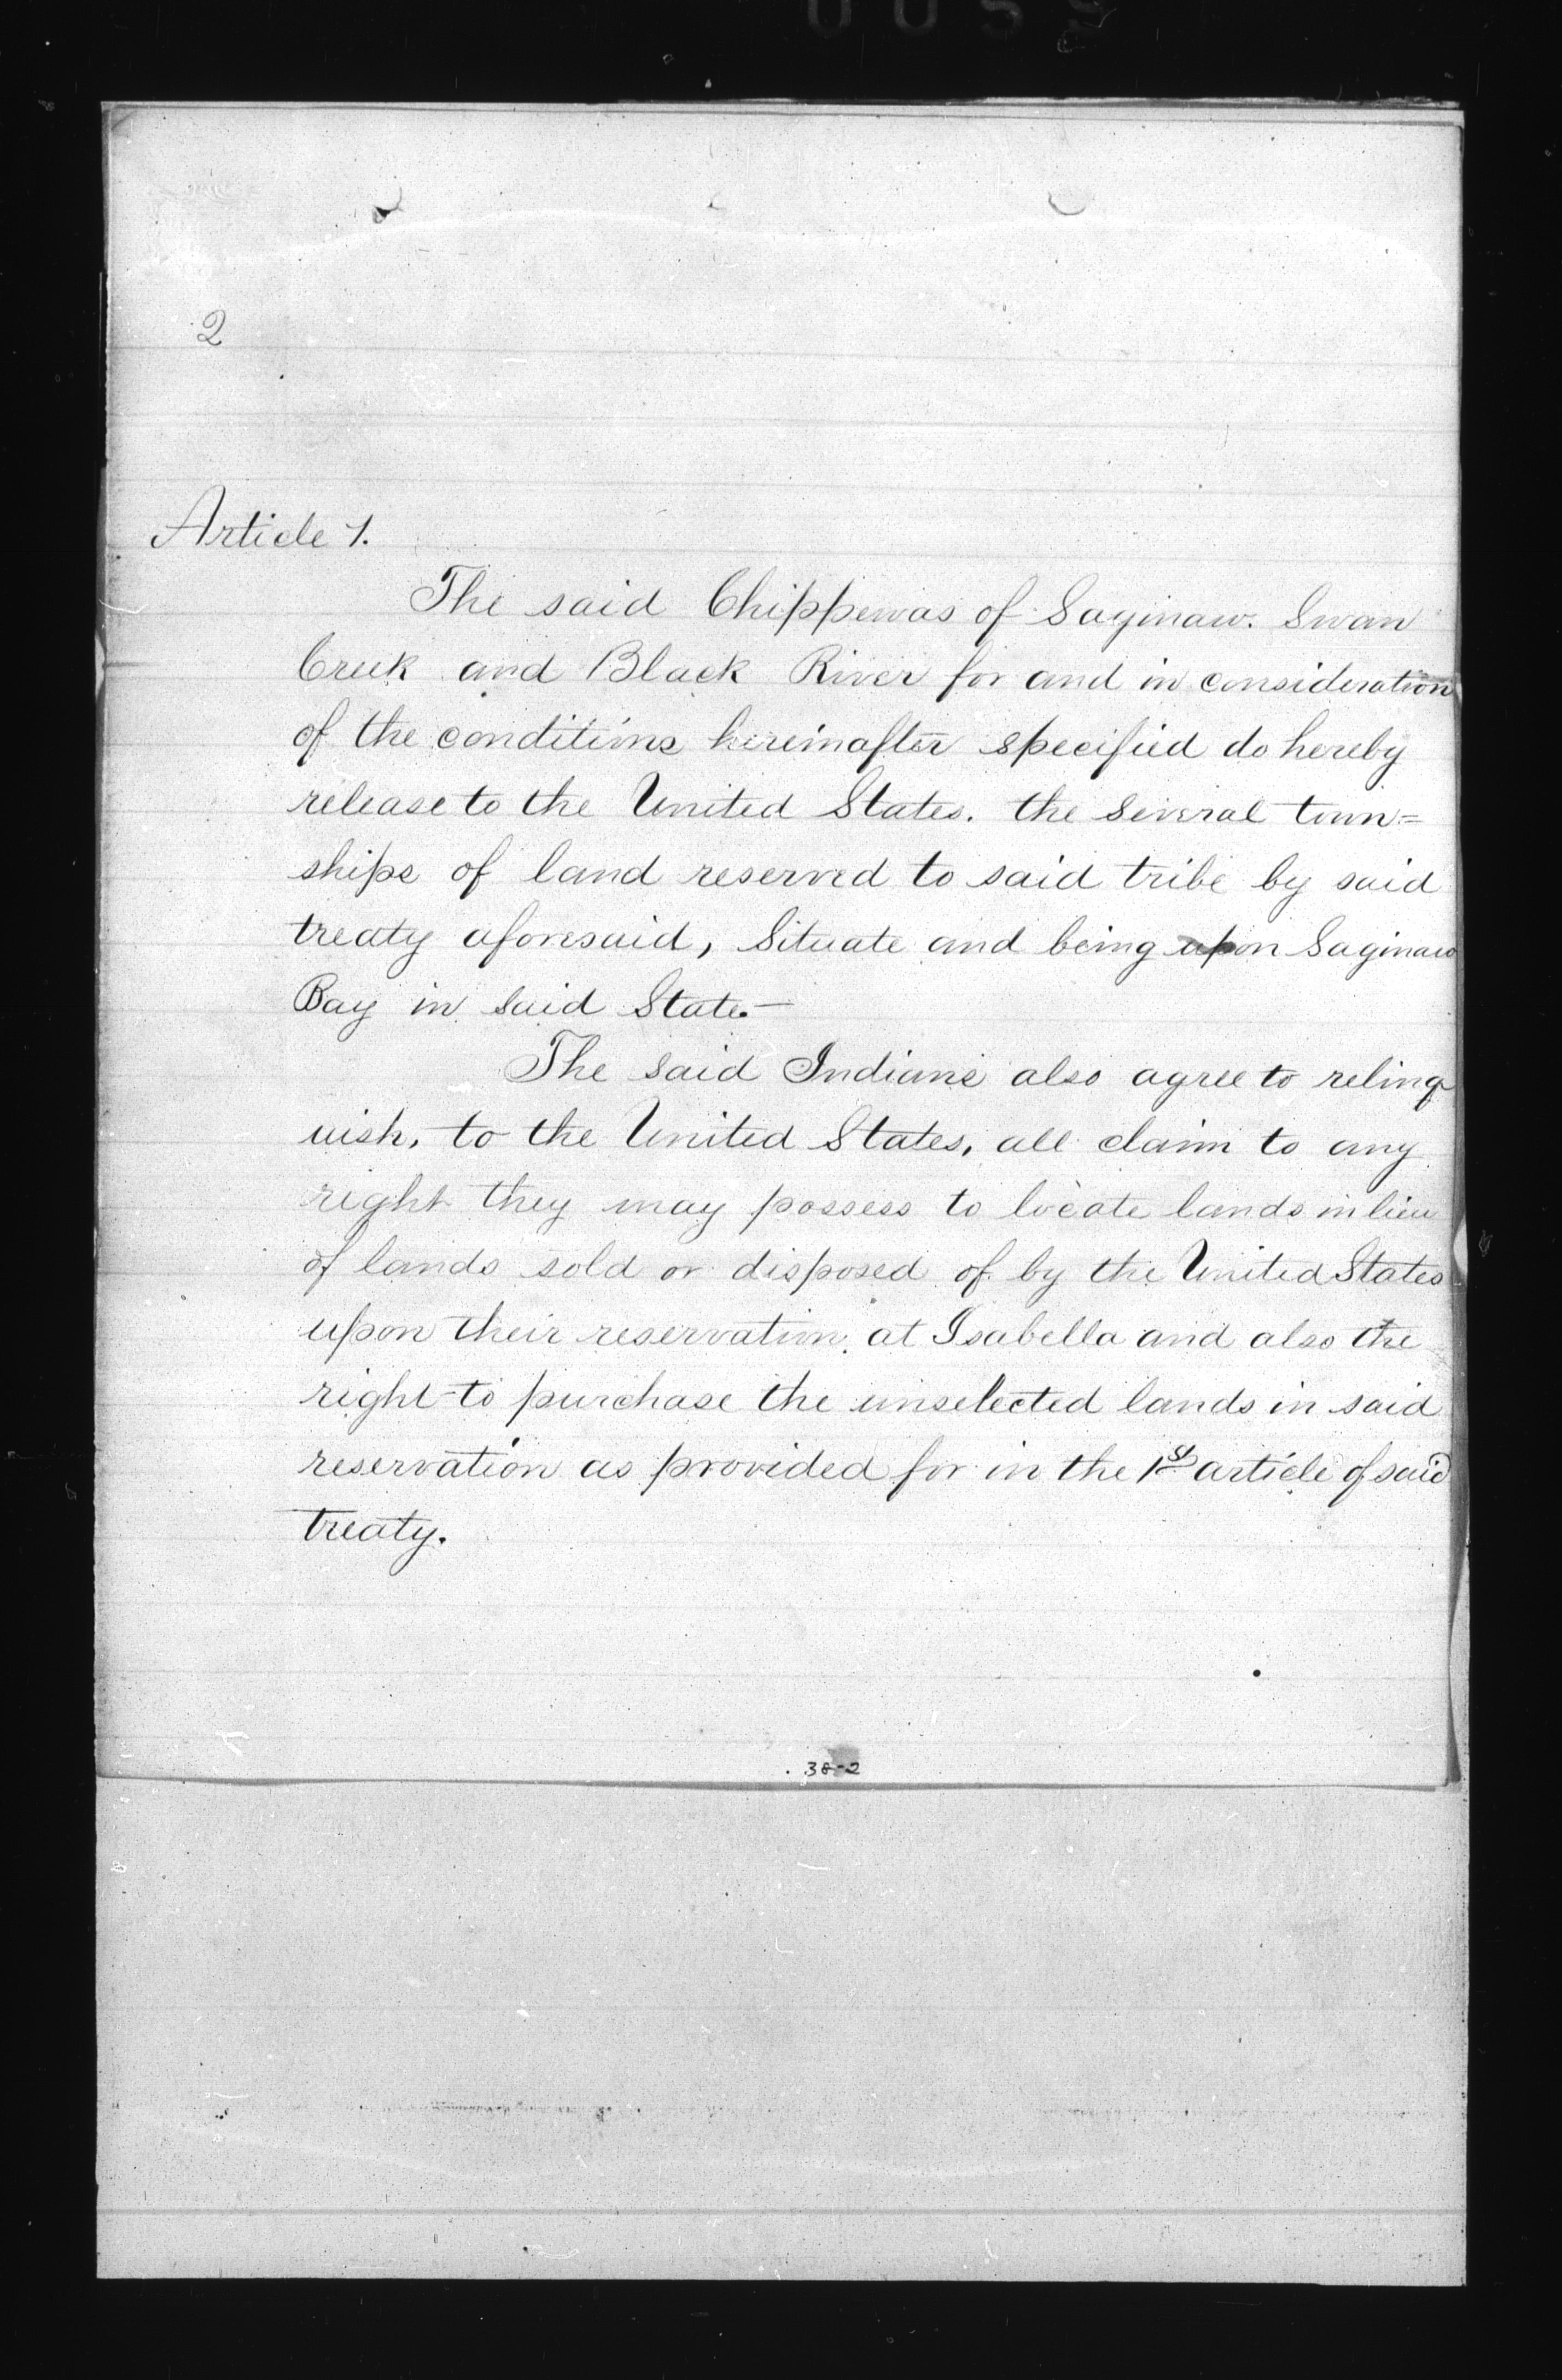 2
Article 1.
The said Chippewas of Saginaw. Swan
Creek and Black River for and in consideration
of the conditions hereinafter specified do hereby
release to the United States. the several town=
ships of land reserved to said tribe by said
treaty aforesaid, Situate and being upon Saginaw
Bay in said State.—
The said Indians also agree to relinq
uish, to the United States, all claim to any
right they may possess to locate lands in lieu
of lands sold or disposed of by the United States
upon their reservation, at Isabella and also the
right to purchase the unselected lands in said
reservation as provided for in the 1st article of said
treaty.
38-2